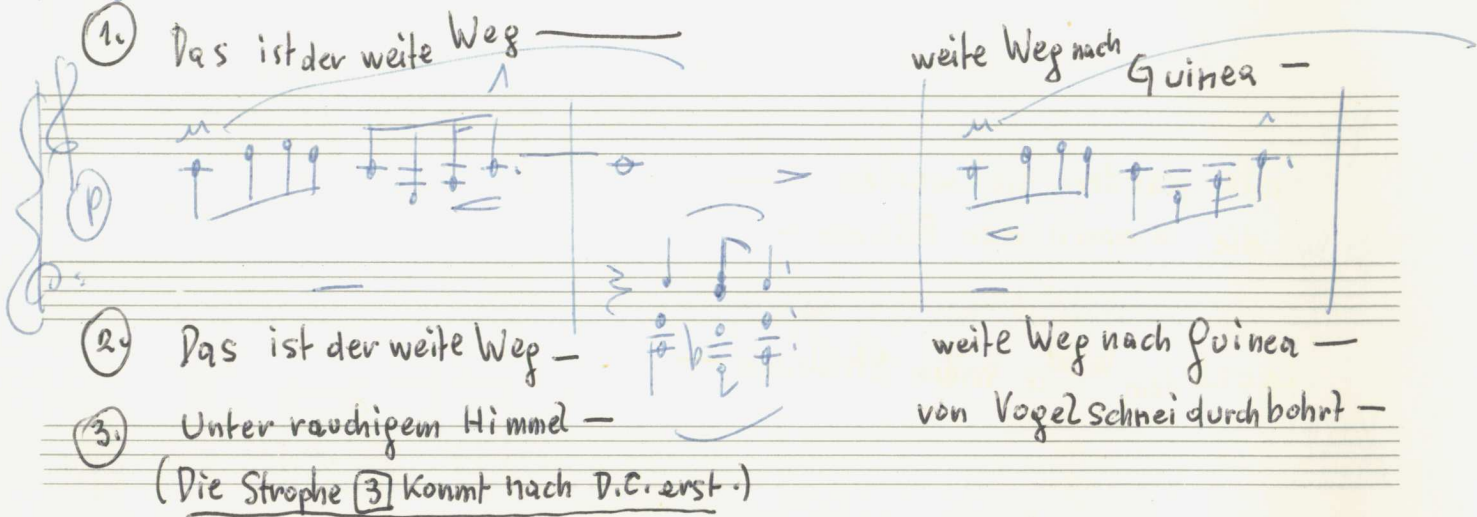 1. Das ist der weite Weg — weite Weg nach Guinea —
p
2. Das ist der weite Weg — weite Weg nach Guinea —
3. Unter rauchigem Himmel — von Vogelschrei durchbohrt —
(Die Strophe 3 kommt nach D.C. erst.)